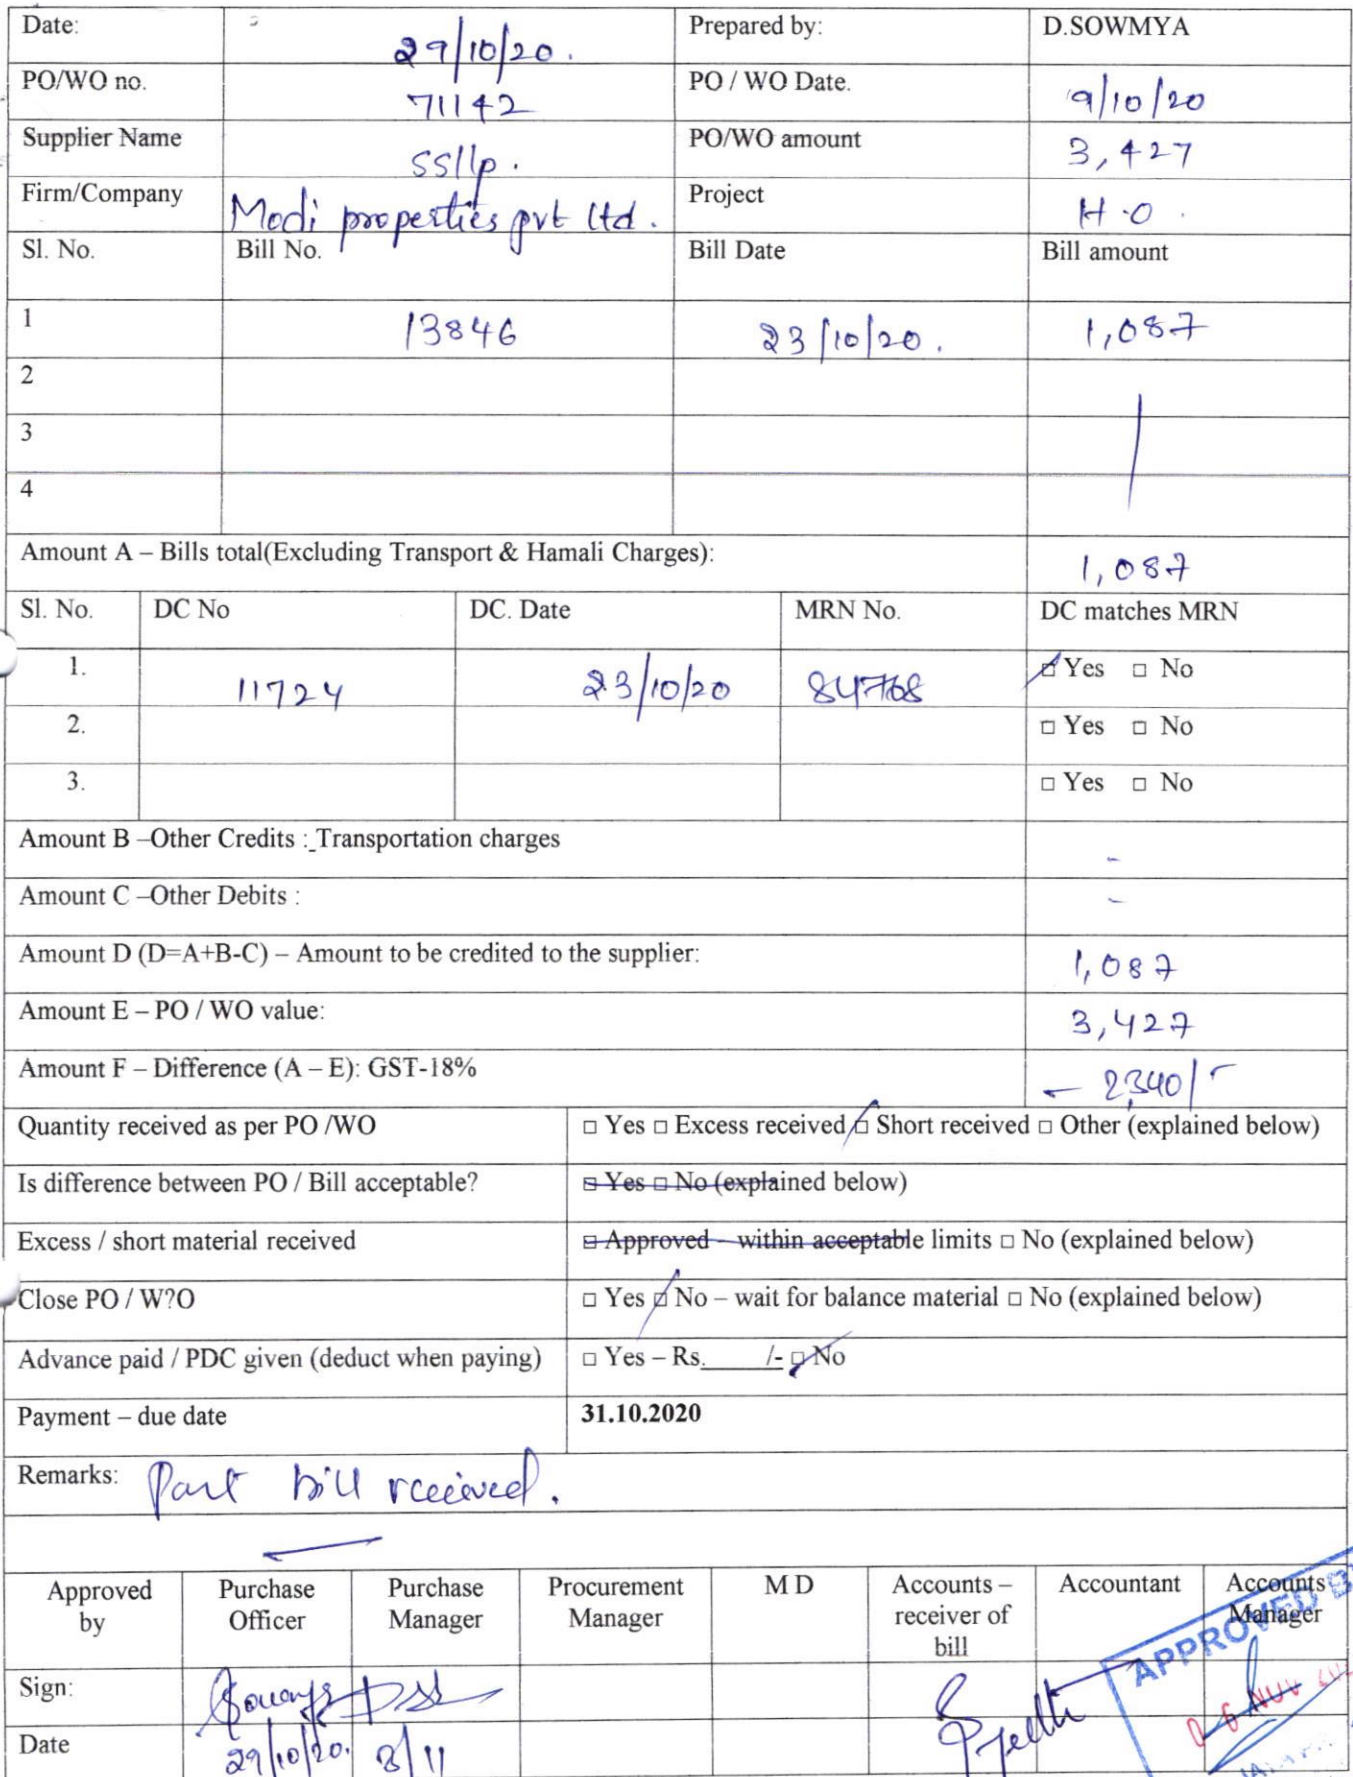 Date: 29/10/20. Prepared by: D.SOWMYA
PO/WO no. 71142 PO / WO Date. 9/10/20
Supplier Name SSllp. PO/WO amount 3,427
Firm/Company Modi properties pvt ltd. Project H.O.
Sl. No. Bill No. Bill Date Bill amount
1 13846 23/10/20. 1,087
2
3
4
Amount A – Bills total(Excluding Transport & Hamali Charges): 1,087
Sl. No. DC No DC. Date MRN No. DC matches MRN
1. 11724 23/10/20 84768 □ Yes □ No
2. □ Yes □ No
3. □ Yes □ No
Amount B –Other Credits : Transportation charges -
Amount C –Other Debits : -
Amount D (D=A+B-C) – Amount to be credited to the supplier: 1,087
Amount E – PO / WO value: 3,427
Amount F – Difference (A – E): GST-18% - 2,340/-
Quantity received as per PO /WO □ Yes □ Excess received □ Short received □ Other (explained below)
Is difference between PO / Bill acceptable? □ Yes □ No (explained below)
Excess / short material received □ Approved – within acceptable limits □ No (explained below)
Close PO / W?O □ Yes □ No – wait for balance material □ No (explained below)
Advance paid / PDC given (deduct when paying) □ Yes – Rs.____/- □ No
Payment – due date 31.10.2020
Remarks: Part bill received.
Approved by Purchase Officer Purchase Manager Procurement Manager M D Accounts – receiver of bill Accountant Accounts Manager
APPROVED
Sign:
06 NOV
Date 29/10/20. 3/11